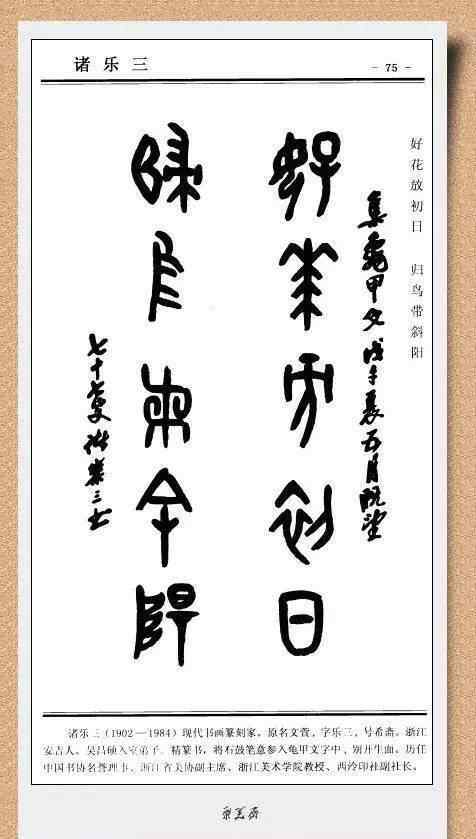 诸乐三
- 75 -
好花放初日 归鸟带斜阳
集龟甲文戊午夏五月既望
好华方初日
归鸟带余阳
七十七叟诸乐三书
诸乐三（1902—1984）现代书画篆刻家。原名文萱，字乐三，号希斋。浙江
安吉人。吴昌硕入室弟子。精篆书，将石鼓笔意参入龟甲文字中，别开生面。历任
中国书协名誉理事、浙江省美协副主席、浙江美术学院教授、西泠印社副社长。